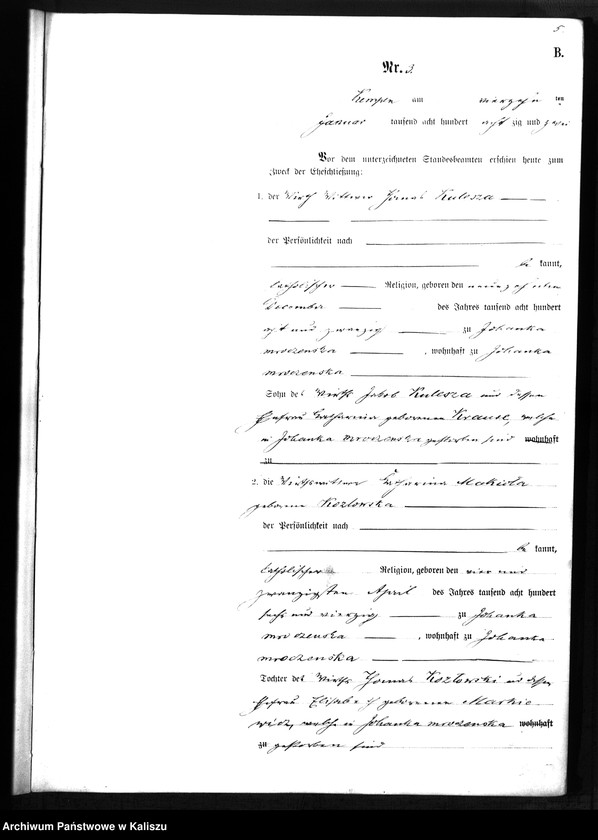 5
B.
Nr. 3.
Kempen am vierzehn ten
Januar tausend acht hundert acht zig und zwei
Vor dem unterzeichneten Standesbeamten erschien heute zum
Zweck der Eheschließung:
1. der Wirth Wittwer Thomas Kulesza
der Persönlichkeit nach
be kannt,
katholischer Religion, geboren den neunzehnten
December des Jahres tausend acht hundert
acht und zwanzig zu Johanka
mroczenska, wohnhaft zu Johanka
mroczenska
Sohn des Wirth Jakob Kulesza und dessen
Ehefrau Catharina geborenen Krause, welche
in Johanka mroczenska gestorben sind wohnhaft
zu
2. die Catharina Makiola
geborene Kozlowska
der Persönlichkeit nach
be kannt,
katholischer Religion, geboren den vier und
zwanzigsten April des Jahres tausend acht hundert
sechs und vierzig zu Johanka
mroczenska, wohnhaft zu Johanka
mroczenska
Tochter des Wirths Thomas Kozlowski und dessen
Ehefrau Elisabeth geborenen Markie
wicz, welche in Johanka mroczenska wohnhaft
zu gestorben sind
Archiwum Państwowe w Kaliszu